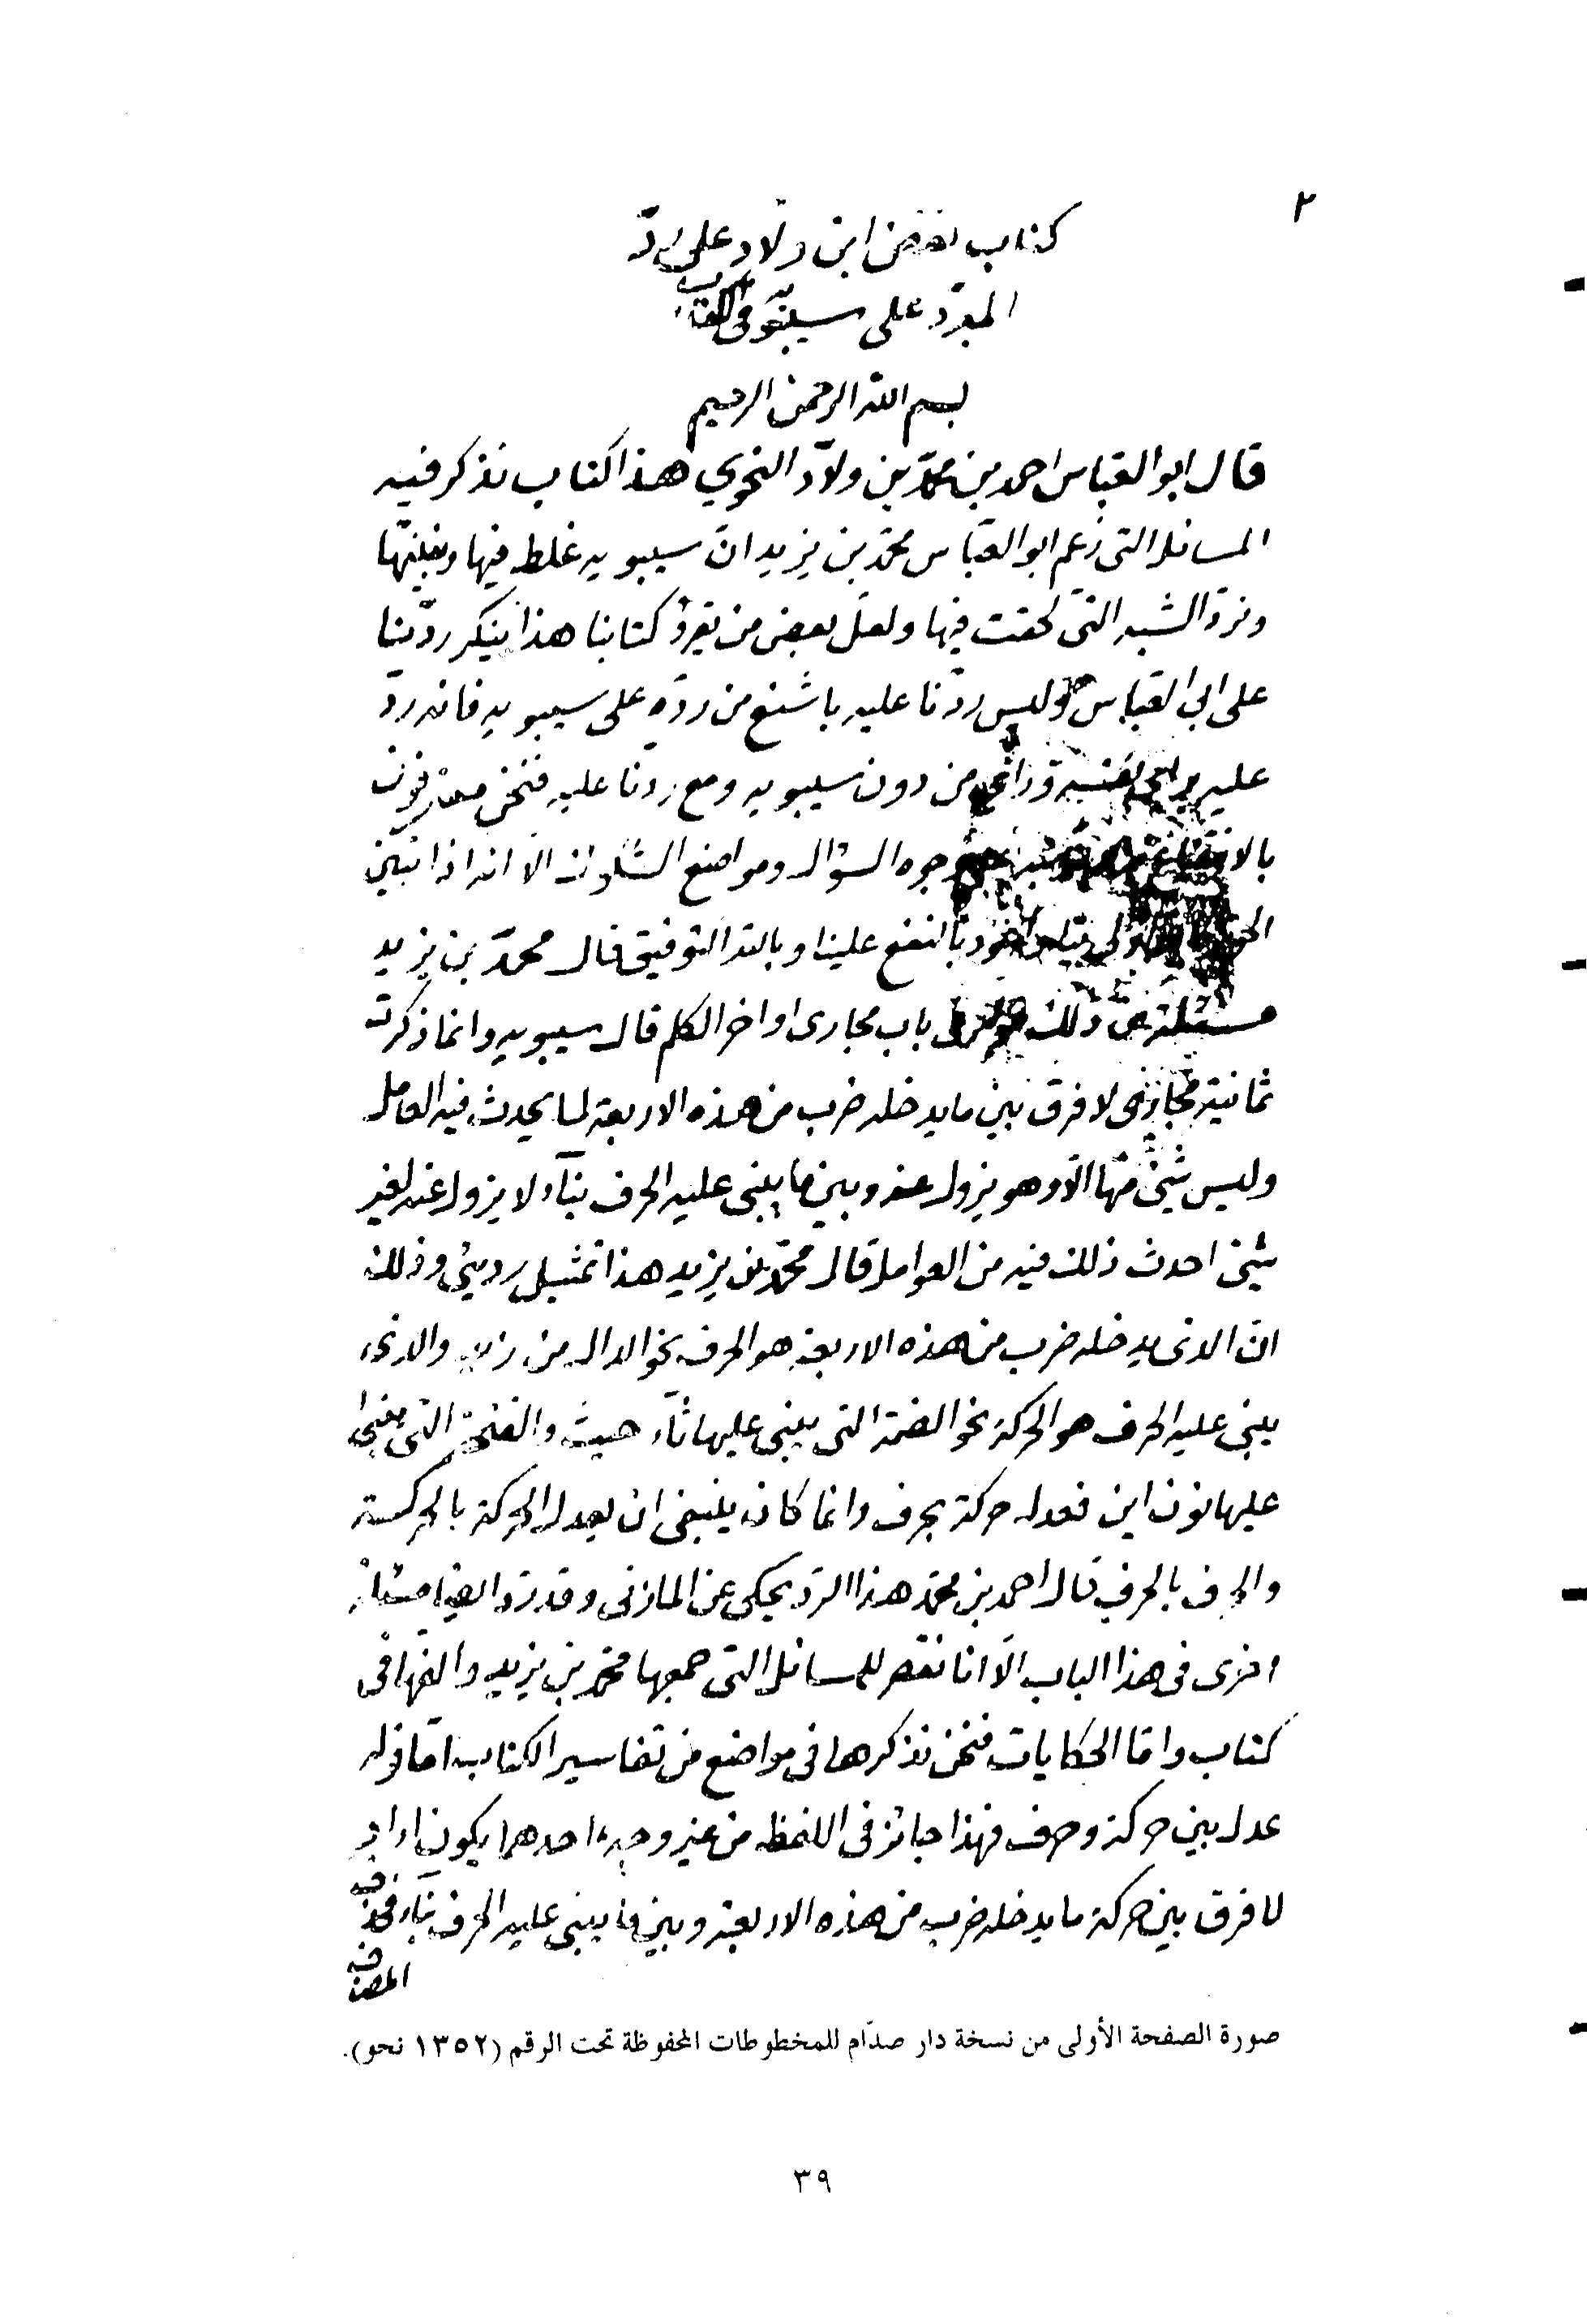 ٢
كتاب نقض ابن ولاد على ردّ
المبرّد على سيبويه في الكتاب
بسم الله الرحمن الرحيم
قال ابو العباس احمد بن محمّد بن ولاّد النحوي هذا كتاب نذكر فيه
المسائل التى زعم ابو العبّاس محمّد بن يزيد انّ سيبويه غلط فيها ونبينها
ونردّ الشبه التى لحقت فيها ولعلّ بعض من يقرؤ كتابنا هذا ينكر ردّنا
على ابى العباس وليس ردّنا عليه باشنع من ردّه على سيبويه فانه ردّ
عليه برايه نفسه وراى من دون سيبويه ومع ردّنا عليه فنحن معترفون
بالانتفاع وجوه السؤال ومواضع الشكوك الاّ انه اذا تبين
بالنفع علينا وبالله التوفيق قال محمّد بن يزيد
مسئلة ذلك باب مجارى اواخر الكلم قال سيبويه وانما ذكرت
ثمانية مجارى لا فرق بين ما يدخله ضرب من هذه الاربعة لما يحدث فيه العامل
وليس شئ منها الاّ وهو يزول عنه وبين ما يبنى عليه الحرف بنآء لا يزول عنه لغير
شئ احدث ذلك فيه من العوامل قال محمّد بن يزيد هذا تمثيل ردئ وذلك
انّ الذى يدخله ضرب من هذه الاربعة هو الحرف نحو الدال من زيد والذى
يبنى عليه الحرف هو الحركة نحو الضمة التى يبنى عليها ثآء حيث والفتحة التى يبنى
عليها نون اين فعدل حركة بحرف وانما كان ينبغى ان يعدل الحركة بالحركة
والحرف بالحرف قال احمد بن محمّد هذا الردّ يحكى عن المازنى وقد ردّ ايضا مسئلة
اخرى فى هذا الباب الاّ انا نقصد للمسائل التى جمعها محمّد بن يزيد والفها فى
كتاب وامّا الحكايات فنحن نذكرها فى مواضع من تفاسير الكتاب امّا قوله
عدل بين حركة وحرف فهذا جائز فى اللفظ من غير وجه احدهما يكون اراد
لا فرق بين حركة ما يدخله ضرب من هذه الاربعة وبين ما يبنى عليه الحرف بنآء فحذف
المضاف
صورة الصفحة الأولى من نسخة دار صدّام للمخطوطات المحفوظة تحت الرقم (١٣٥٢ نحو).
٣٩